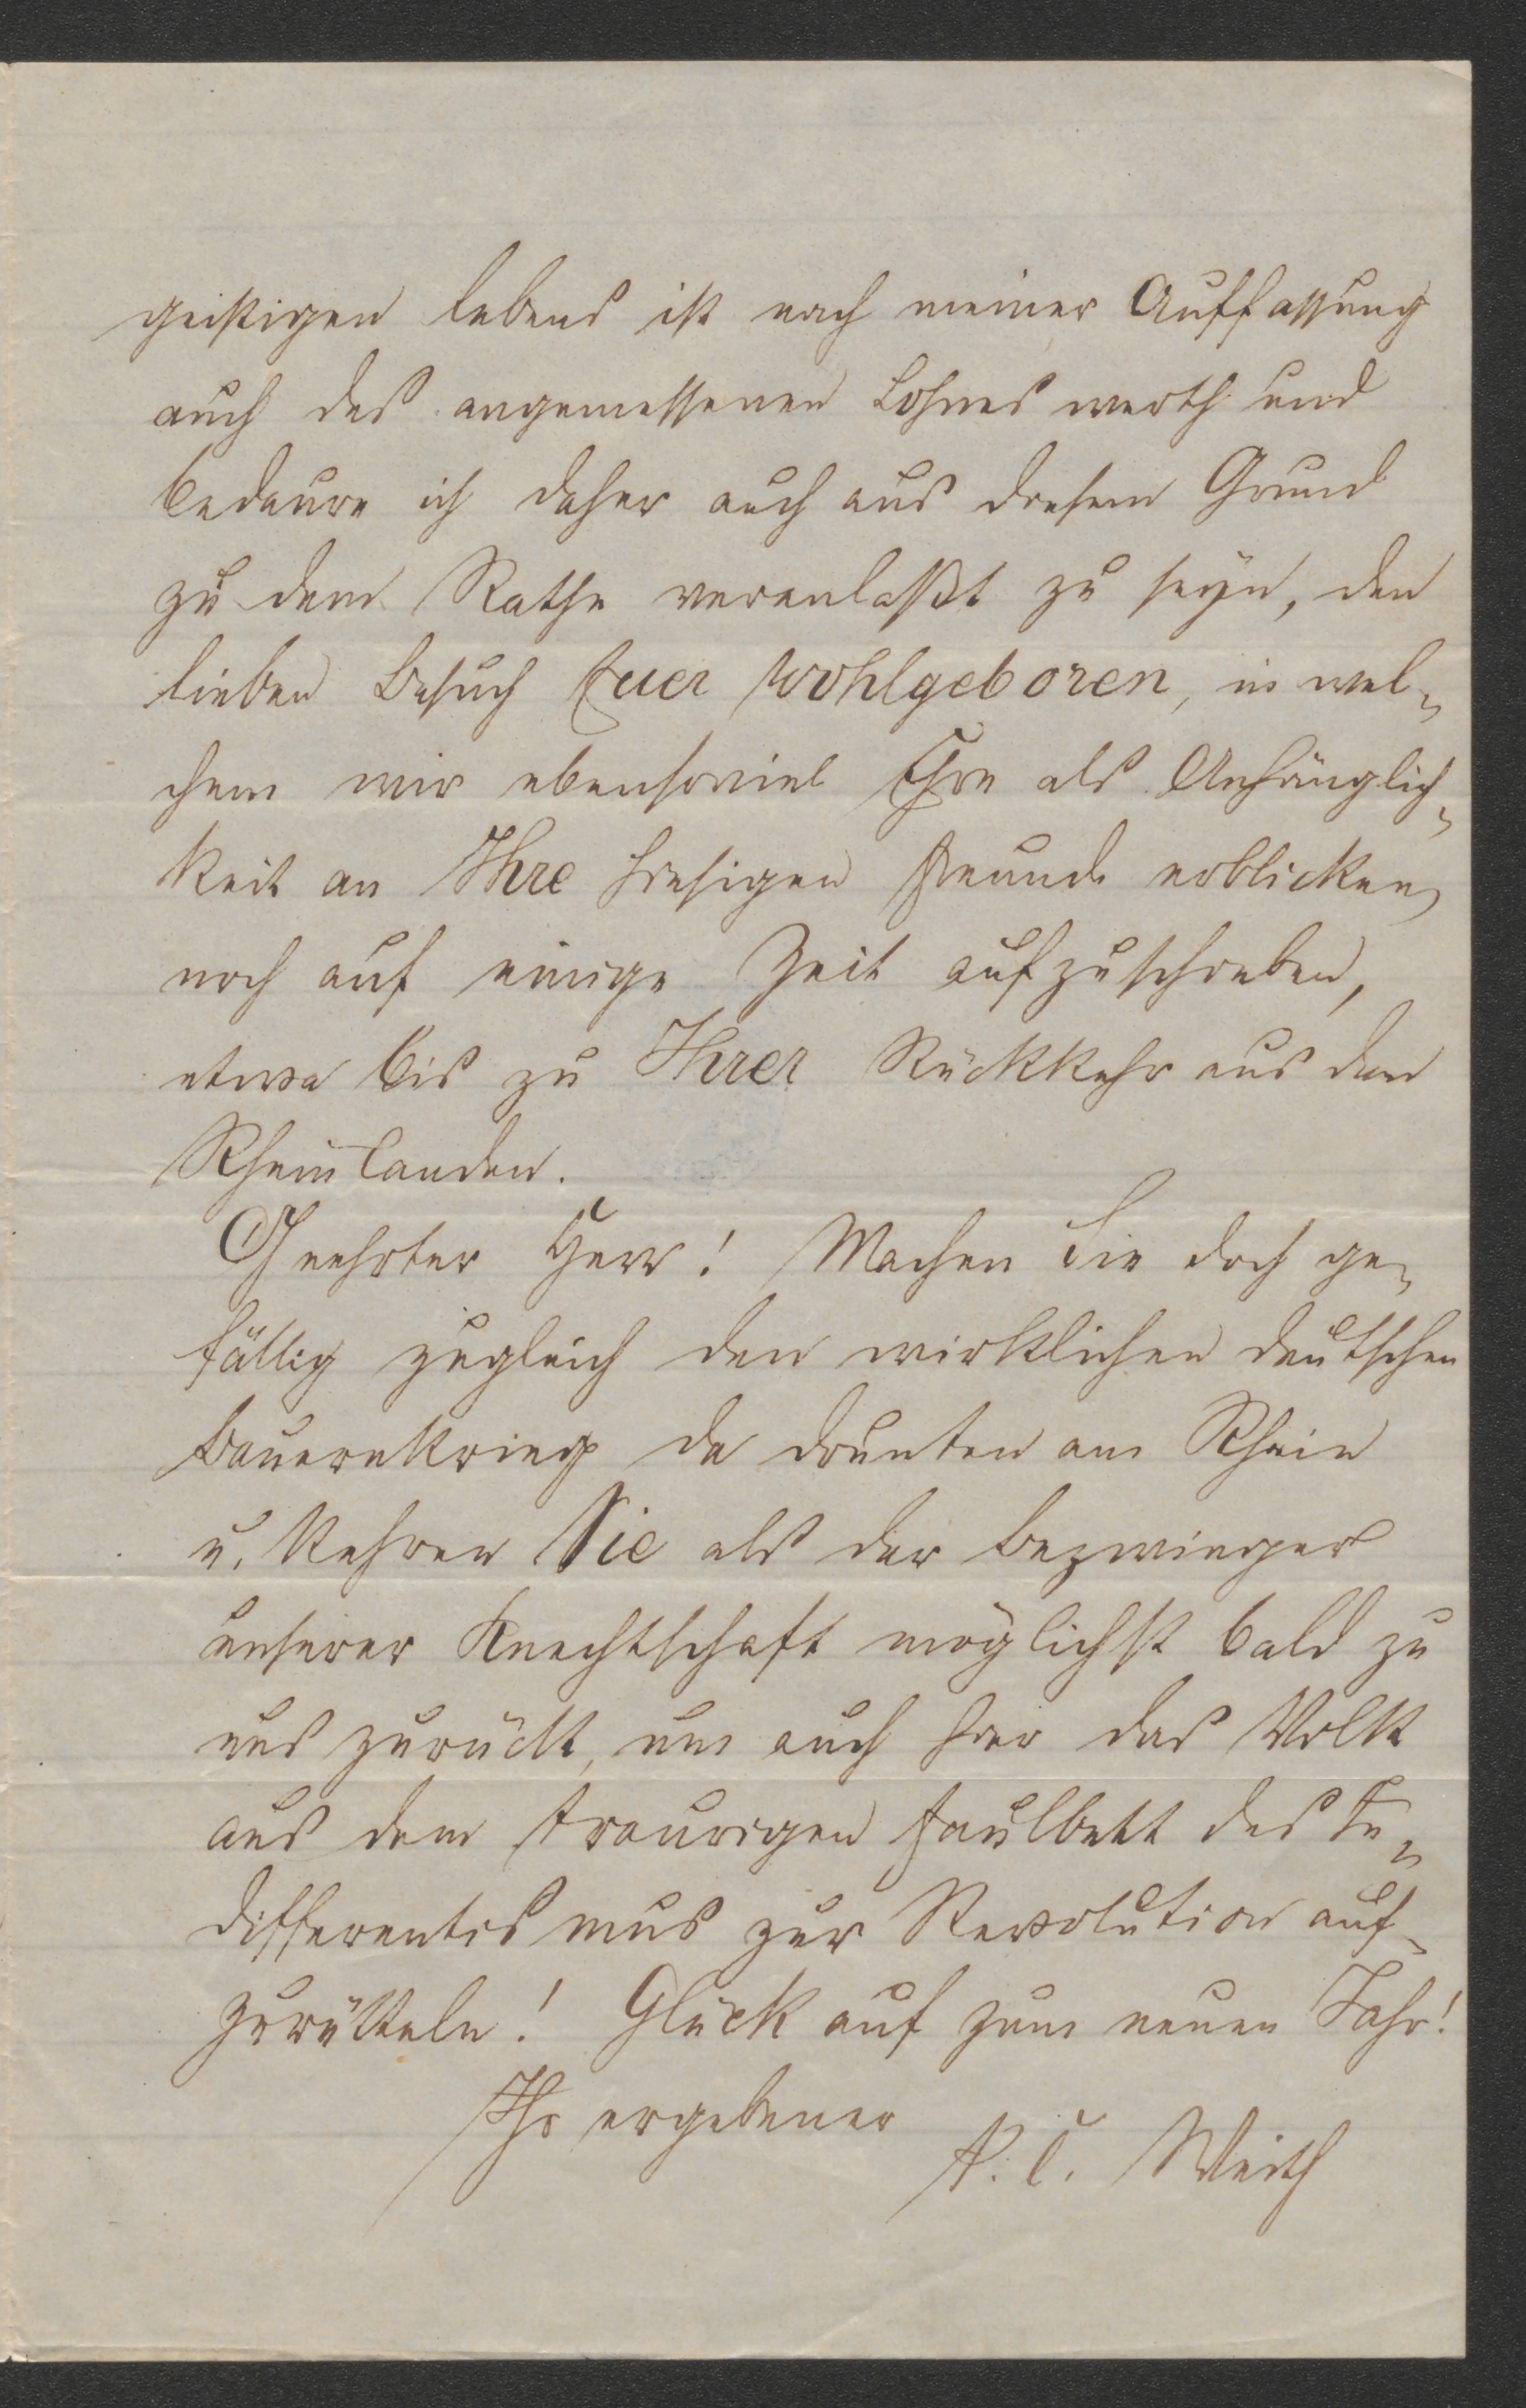 geistigen Lebens ist nach meiner Auffassung
auch des angemessenen Lohnes werth und
bedaure ich daher auch aus diesem Grund
zu dem Rathe veranlaßt zu seyn, den
lieben Besuch Euer Wohlgeboren, in wel-
chem wir ebensoviel Ehre als Anhänglich-
keit an Ihre hiesigen Freunde erblicken,
noch auf einige Zeit aufzuschieben,
etwa bis zu Ihrer Rückkehr aus den
Rheinlanden.
Geehrter Herr! Machen Sie doch ge-
fällig zugleich den wirklichen deutschen
Bauernkrieg da drunten am Rhein
u. kehren Sie als der Bezwinger
unserer Knechtschaft möglichst bald zu
uns zurück, um auch hier das Volk
aus dem traurigen Faulbett des In-
differentismus zur Revolution auf-
zurütteln! Glück auf zum neuen Jahr!
Ihr ergebener
Weith